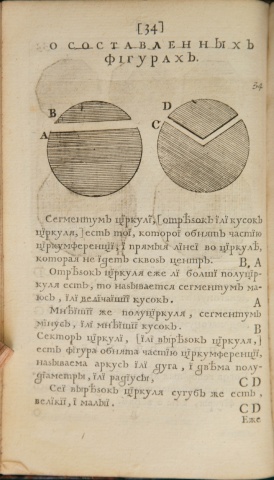 [34]
О СОСТАВЛЕННЫХЪ
ФIГУРАХЪ.
34
B
A
D
C
Сегментумъ цıркулı, [отрѣзокъ їлї кусок
цıркуля,] есть тоı, которої обнятъ частїю
цıркумференцїı; ї прямыя лїнеї во цıркулѣ,
которая не їдетъ сквозь центръ. B, A
Отрѣзокъ цıркуля еже лї болшї полуцıр-
куля есть, то называется сегментумъ ма-
юсъ, їлї велїчаїшїı кусокъ. A
Мнѣїшїı же полуцıркуля, сегментумъ
мїнусъ, їлї мнѣїшїı кусокъ. B
Секторъ цıркулї, [їлї вырѣзокъ цıркуля,]
есть фїгура обнята частїю цıркумференцїı,
называема аркусъ їлї дуга, ї двѣма полу-
дїаметры, їлї радїусы, C D
Сеї вырѣзокъ цıркуля сугубъ же есть,
велїкїı, ї малыı. C D
Еже